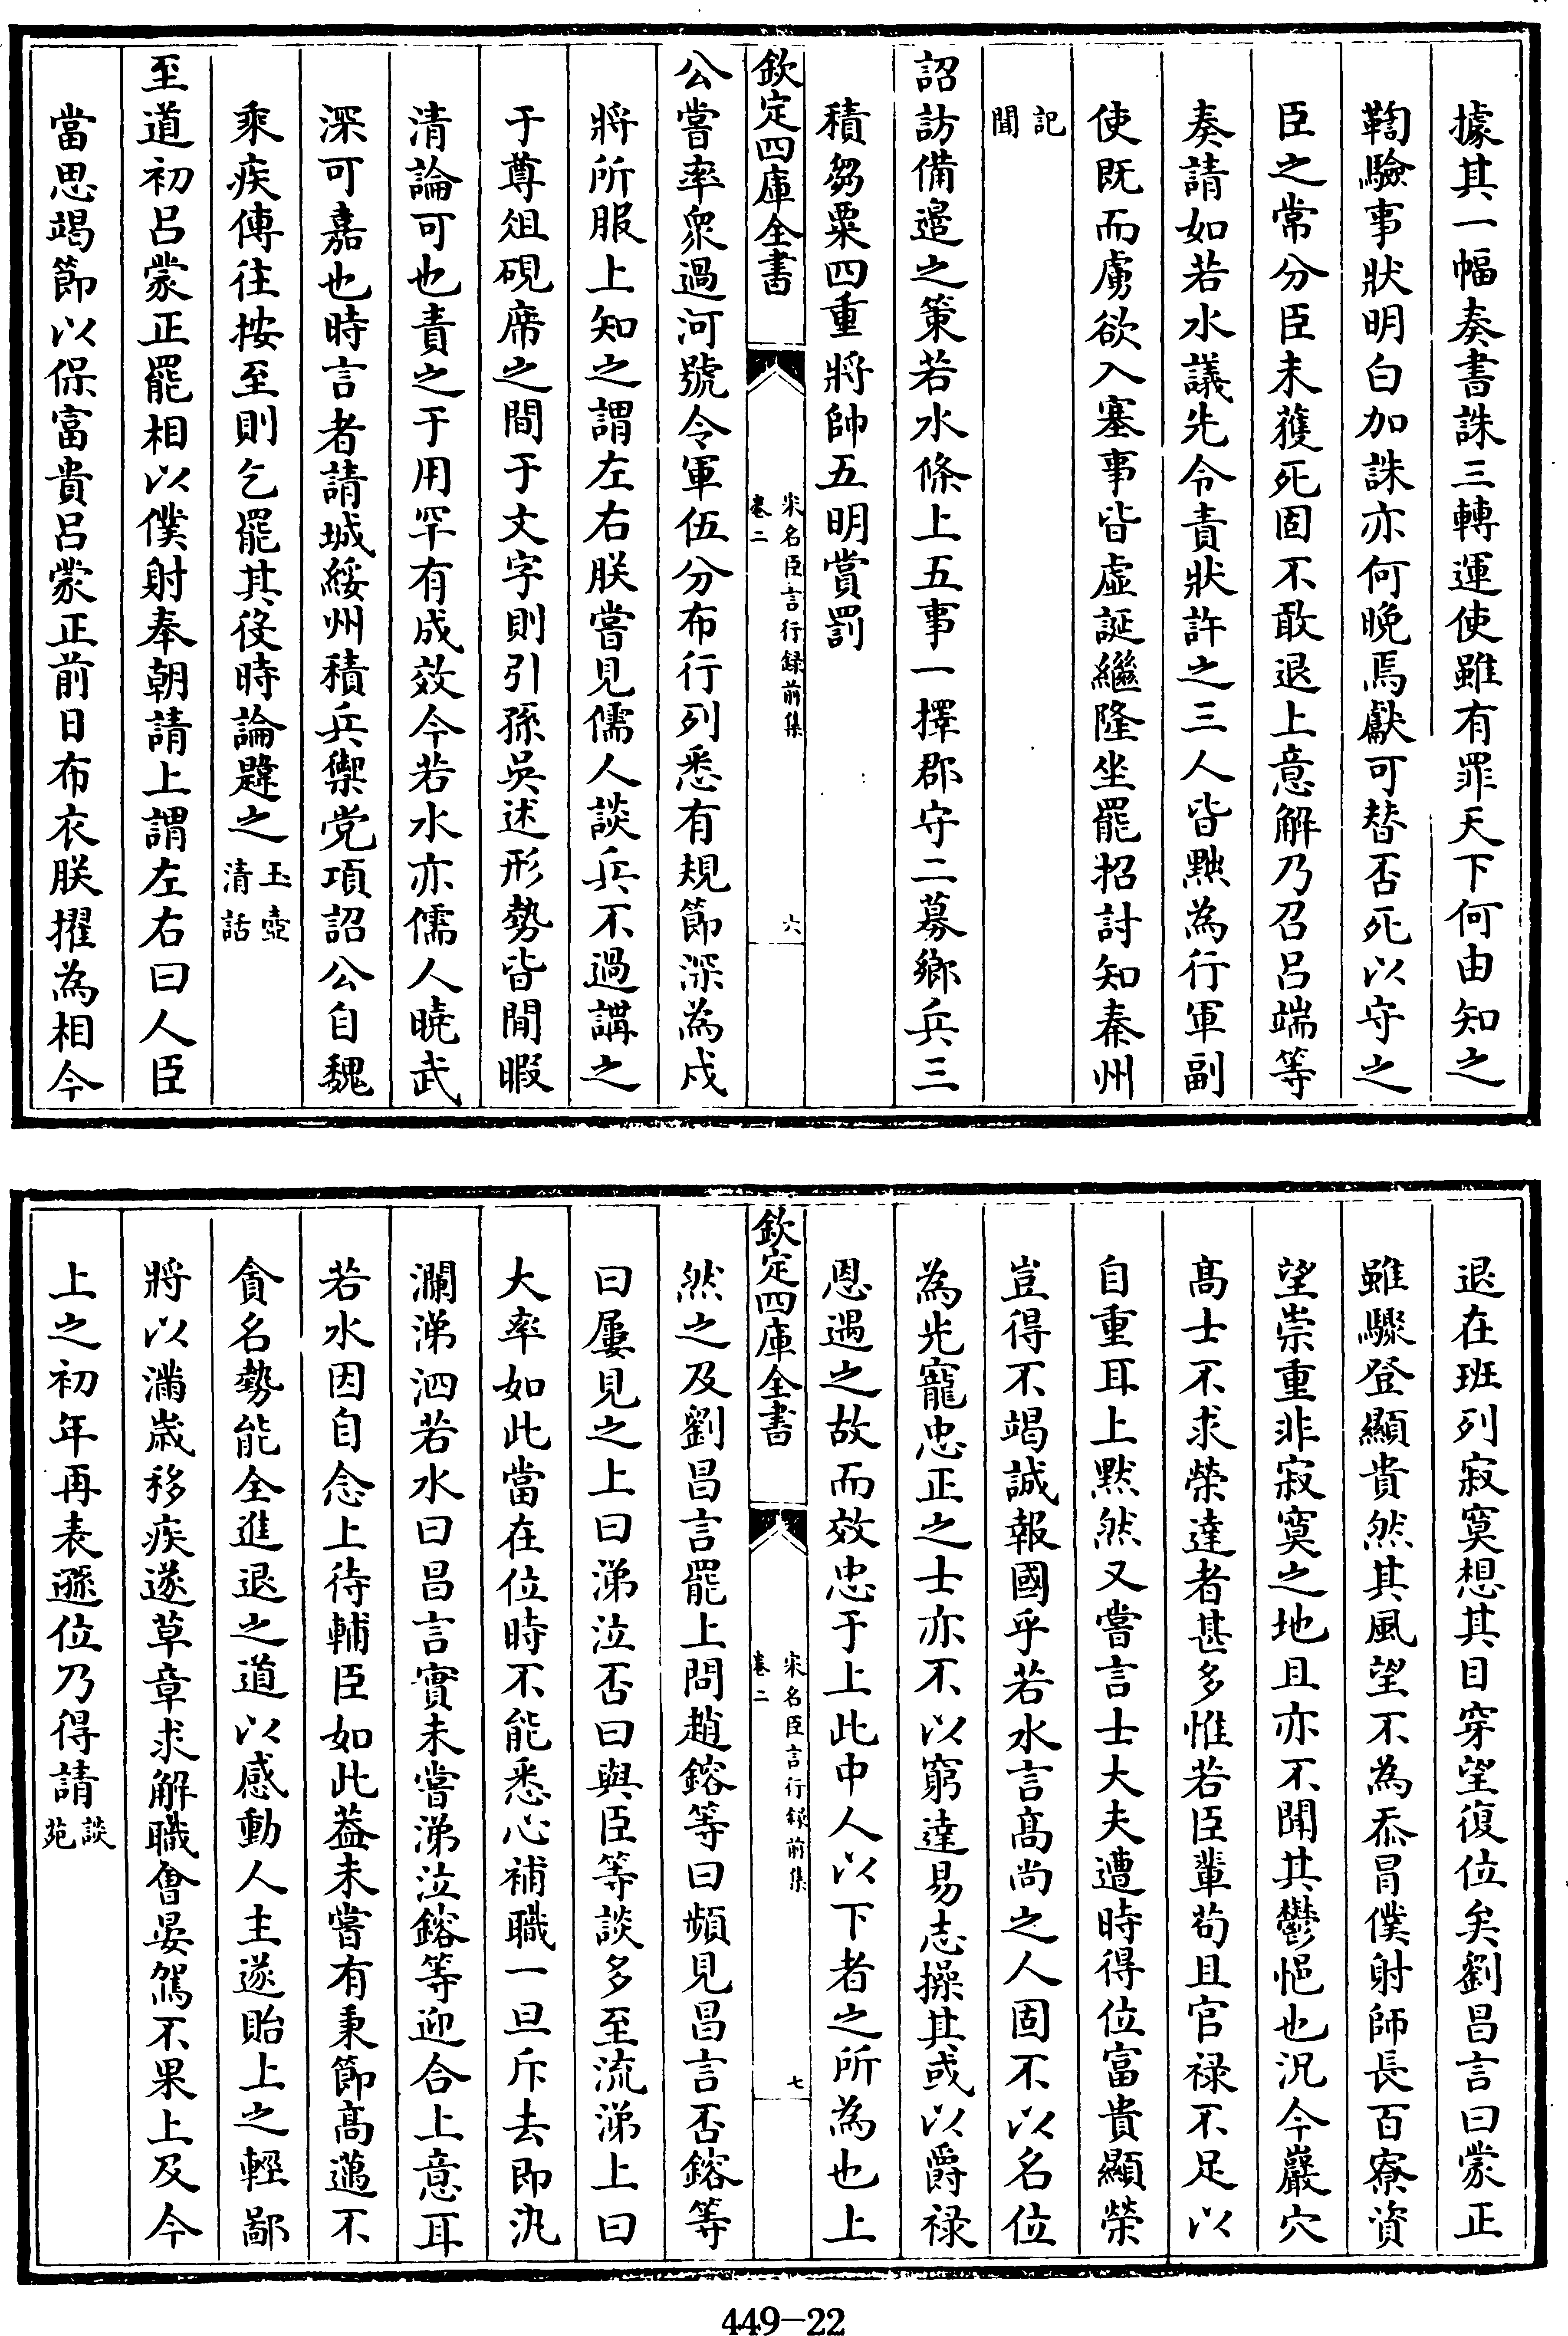 據其一幅奏書誅三轉運使雖有罪天下何由知之
鞫驗事狀明白加誅亦何晚焉獻可替否死以守之
臣之常分臣未獲死固不敢退上意解乃召吕端等
奏請如若水議先令責狀許之三人皆黜為行軍副
使既而虜欲入塞事皆虚誕繼隆坐罷招討知秦州
記聞
詔訪備邉之策若水條上五事一擇郡守二募鄉兵三
積芻粟四重將帥五明賞罰
欽定四庫全書
宋名臣言行録前集
卷二
六
公嘗率衆過河號令軍伍分布行列悉有規節深為戍
將所服上知之謂左右朕嘗見儒人談兵不過講之
于尊俎硯席之間于文字則引孫吳述形勢皆閒暇
清論可也責之于用罕有成效今若水亦儒人曉武
深可嘉也時言者請城綏州積兵禦党項詔公自魏
乘疾傳往按至則乞罷其役時論韙之玉壺清話
至道初吕蒙正罷相以僕射奉朝請上謂左右曰人臣
當思竭節以保富貴吕蒙正前日布衣朕擢為相今
退在班列寂寞想其目穿望復位矣劉昌言曰蒙正
雖驟登顯貴然其風望不為忝冒僕射師長百寮資
望崇重非寂寞之地且亦不聞其鬱悒也況今巖穴
高士不求榮達者甚多惟若臣輩苟且官禄不足以
自重耳上默然又嘗言士大夫遭時得位富貴顯榮
豈得不竭誠報國乎若水言高尚之人固不以名位
為光寵忠正之士亦不以窮達易志操其或以爵禄
恩遇之故而效忠于上此中人以下者之所為也上
欽定四庫全書
宋名臣言行録前集
卷二
七
然之及劉昌言罷上問趙鎔等曰頻見昌言否鎔等
曰屢見之上曰涕泣否曰與臣等談多至流涕上曰
大率如此當在位時不能悉心補職一旦斥去即汍
瀾涕泗若水曰昌言實未嘗涕泣鎔等迎合上意耳
若水因自念上待輔臣如此葢未嘗有秉節高邁不
貪名勢能全進退之道以感動人主遂貽上之輕鄙
將以滿歲移疾遂草章求解職會晏駕不果上及今
上之初年再表遜位乃得請談苑
449-22